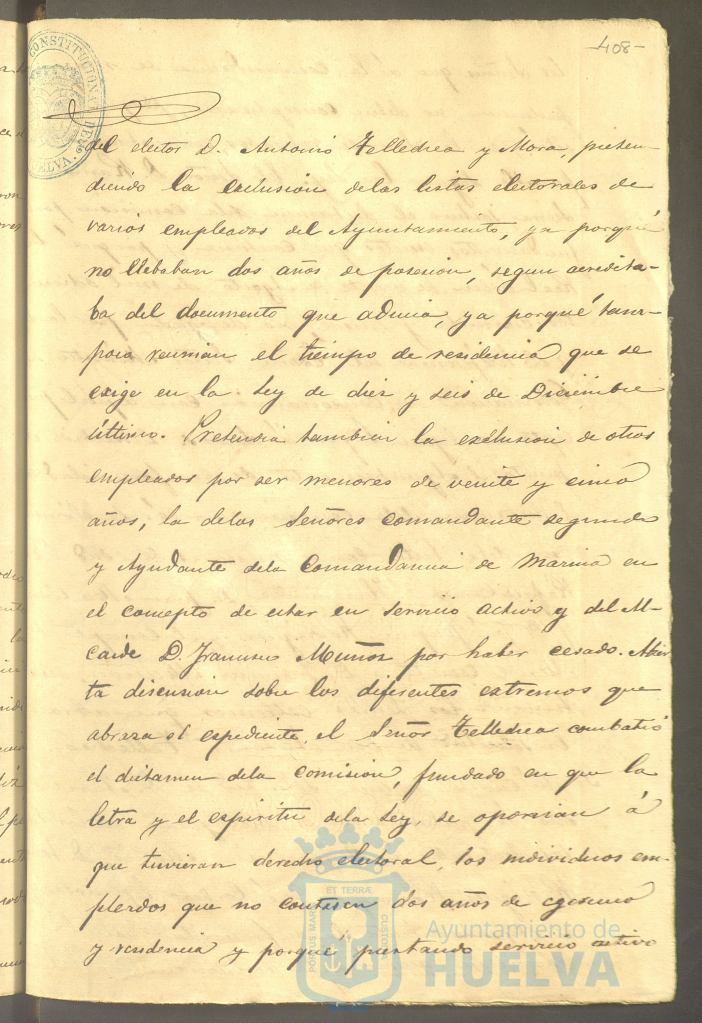 -408-
CONSTITUCIONAL DE HUELVA.
del elector D. Antonio Tellechea y Mora, preten-
diendo la exclusion delas listas electorales de
varios empleados del Ayuntamiento, ya porqué
no llebaban dos años de posesion, segun acredita-
ba del documento que aducia, ya porqué tam-
poco reunian el tiempo de residencia que se
exige en la Ley de diez y seis de Diciembre
último. Pretendia tambien la exclusion de otros
empleados por ser menores de veinte y cinco
años, la delos Señores Comandante segundo
y Ayudante dela Comandancia de Marina en
el concepto de estar en servicio activo y del Al-
caide D. Francisco Muñoz por haber cesado. Abier-
ta discusion sobre los diferentes extremos que
abraza el espediente, el Señor Tellechea combatió
el dictamen dela comision, fundado en que la
letra y el espiritu dela Ley, se oponian á
que tuvieran derecho electoral, los individuos em-
pleados que no contasen dos años de egercicio
y residencia y porqué prestando servicio activo
PORTUS MARIS ET TERRÆ CUSTODIA
Ayuntamiento de
HUELVA